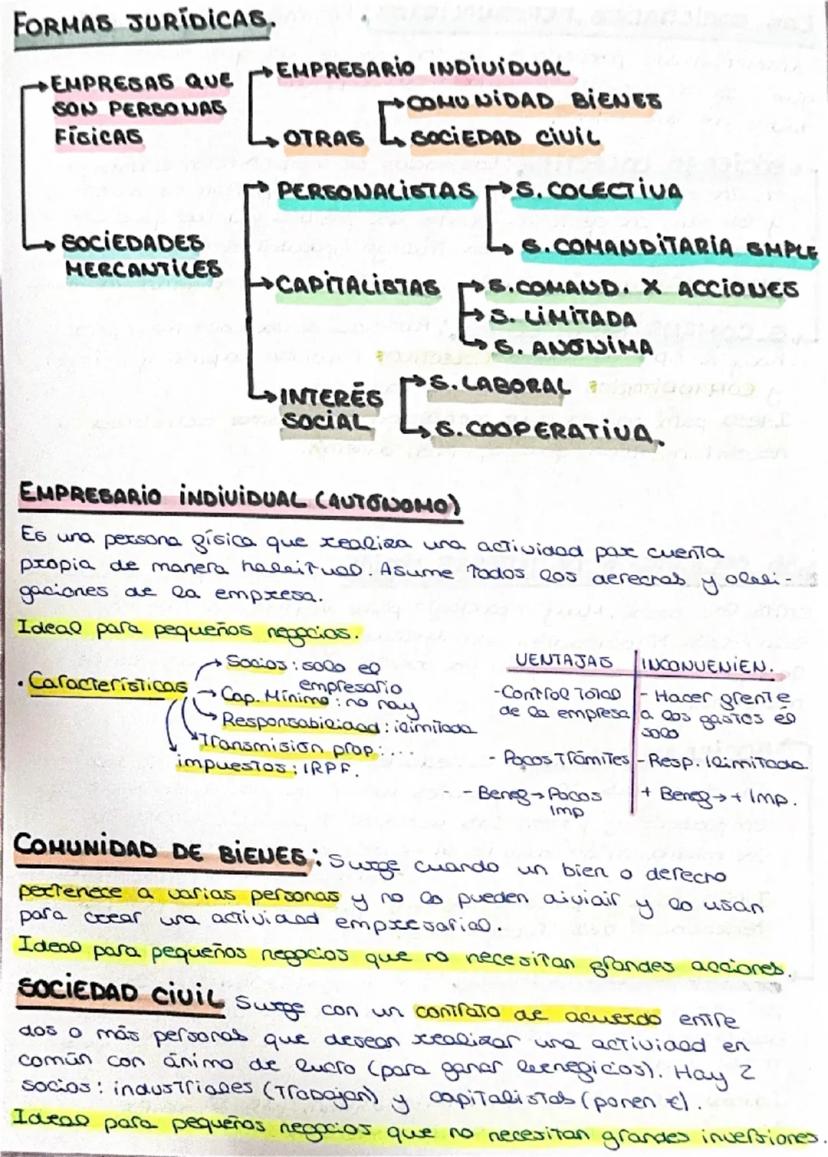 FORMAS JURÍDICAS.
EMPRESAS QUE
SON PERSONAS
FÍSICAS
EMPRESARIO INDIVIDUAL
OTRAS
COMUNIDAD BIENES
SOCIEDAD CIVIL
SOCIEDADES
MERCANTILES
PERSONALISTAS
S. COLECTIVA
S. COMANDITARIA SMPLE
CAPITALISTAS
S. COMAND. X ACCIONES
S. LIMITADA
S. ANÓNIMA
INTERÉS
SOCIAL
S. LABORAL
S. COOPERATIVA.
EMPRESARIO INDIVIDUAL (AUTÓNOMO)
Es una persona física que realiza una actividad por cuenta
propia de manera habitual. Asume todos los derechos y obli-
gaciones de la empresa.
Ideal para pequeños negocios.
· Características
Socios: solo el
empresario
Cap. Mínimo: no hay
Responsabilidad: ilimitada
Transmisión prop: ...
impuestos: IRPF.
VENTAJAS | INCONVENIEN.
- Control Total | - Hacer frente
de la empresa | a los gastos el
solo
- Pocos Trámites | - Resp. ilimitada
- Benef → Pocos | + Benef → + Imp.
Imp
COMUNIDAD DE BIENES: Surge cuando un bien o derecho
pertenece a varias personas y no lo pueden dividir y lo usan
para crear una actividad empresarial.
Ideal para pequeños negocios que no necesitan grandes acciones.
SOCIEDAD CIVIL Surge con un contrato de acuerdo entre
dos o más personas que desean realizar una actividad en
común con ánimo de lucro (para ganar beneficios). Hay 2
socios: industriales (Trabajan) y capitalistas (ponen €).
Ideal para pequeños negocios que no necesitan grandes inversiones.